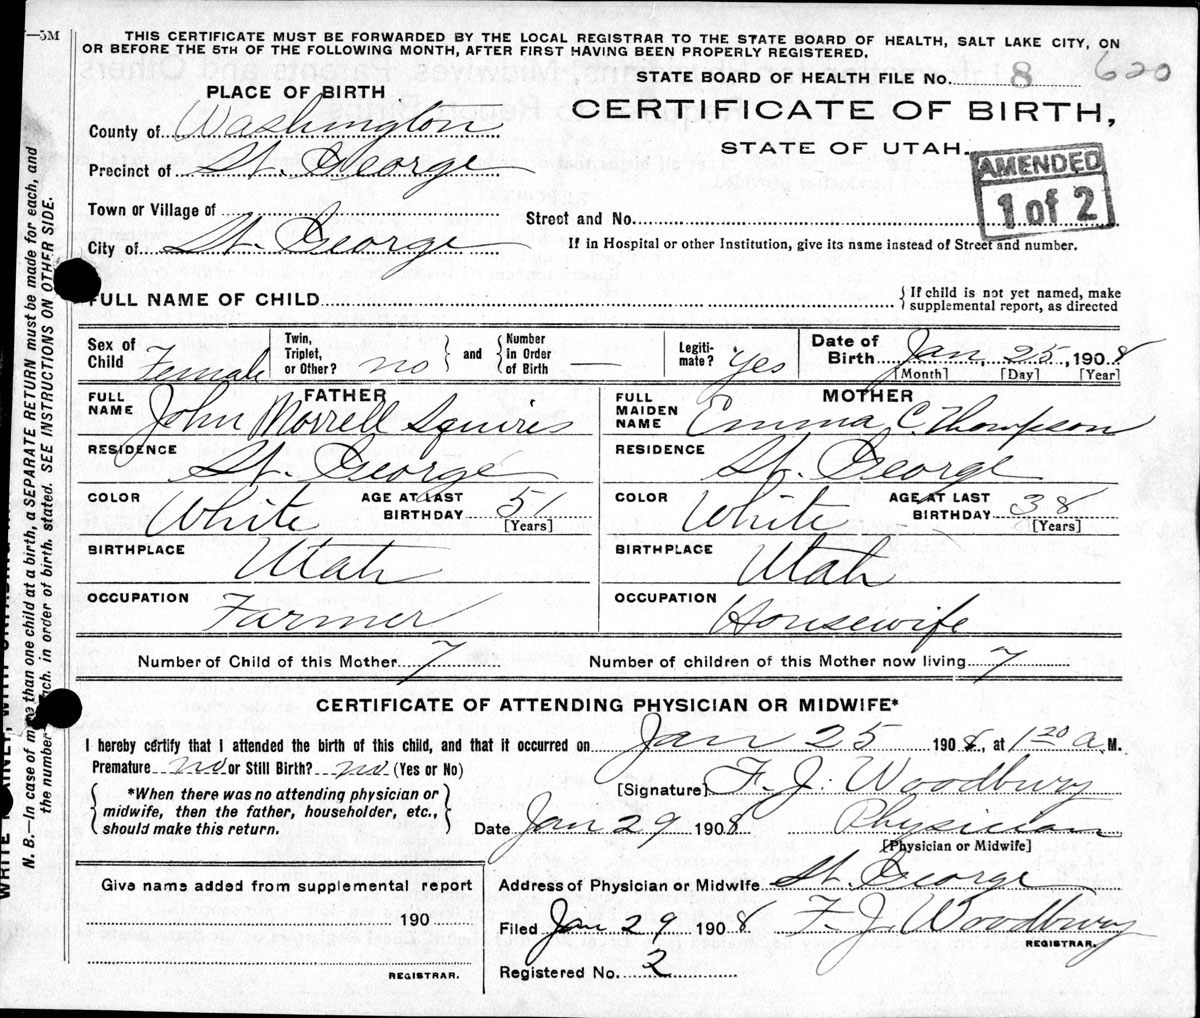 -5M
THIS CERTIFICATE MUST BE FORWARDED BY THE LOCAL REGISTRAR TO THE STATE BOARD OF HEALTH, SALT LAKE CITY, ON
OR BEFORE THE 5TH OF THE FOLLOWING MONTH, AFTER FIRST HAVING BEEN PROPERLY REGISTERED.
STATE BOARD OF HEALTH FILE No. 8 620
PLACE OF BIRTH
CERTIFICATE OF BIRTH,
County of Washington
STATE OF UTAH.
AMENDED
1 of 2
Precinct of St. George
Town or Village of
Street and No.
City of St. George
If in Hospital or other Institution, give its name instead of Street and number.
FULL NAME OF CHILD { If child is not yet named, make
supplemental report, as directed
Sex of Child Female
Twin, Triplet, or Other? no } and { Number in Order of Birth —
Legiti-mate? Yes
Date of Birth Jan, 25, 1908
[Month] [Day] [Year]
FATHER
FULL NAME John Morrell Squires
RESIDENCE St. George
COLOR White AGE AT LAST BIRTHDAY 51 [Years]
BIRTHPLACE Utah
OCCUPATION Farmer
MOTHER
FULL MAIDEN NAME Emma C. Thompson
RESIDENCE St. George
COLOR White AGE AT LAST BIRTHDAY 38 [Years]
BIRTHPLACE Utah
OCCUPATION Housewife
Number of Child of this Mother 7 Number of children of this Mother now living 7
CERTIFICATE OF ATTENDING PHYSICIAN OR MIDWIFE*
I hereby certify that I attended the birth of this child, and that it occurred on Jan 25 1908, at 1 20 a. M.
Premature no or Still Birth? no (Yes or No)
[Signature] F. J. Woodbury
{ *When there was no attending physician or
midwife, then the father, householder, etc.,
should make this return. }
Date Jan 29 1908 Physician
[Physician or Midwife]
Give name added from supplemental report
190
REGISTRAR.
Address of Physician or Midwife St. George
Filed Jan 29 1908 F. J. Woodbury
REGISTRAR.
Registered No. 2
N. B.—In case of more than one child at a birth, a SEPARATE RETURN must be made for each, and
the number of each, in order of birth, stated. SEE INSTRUCTIONS ON OTHER SIDE.